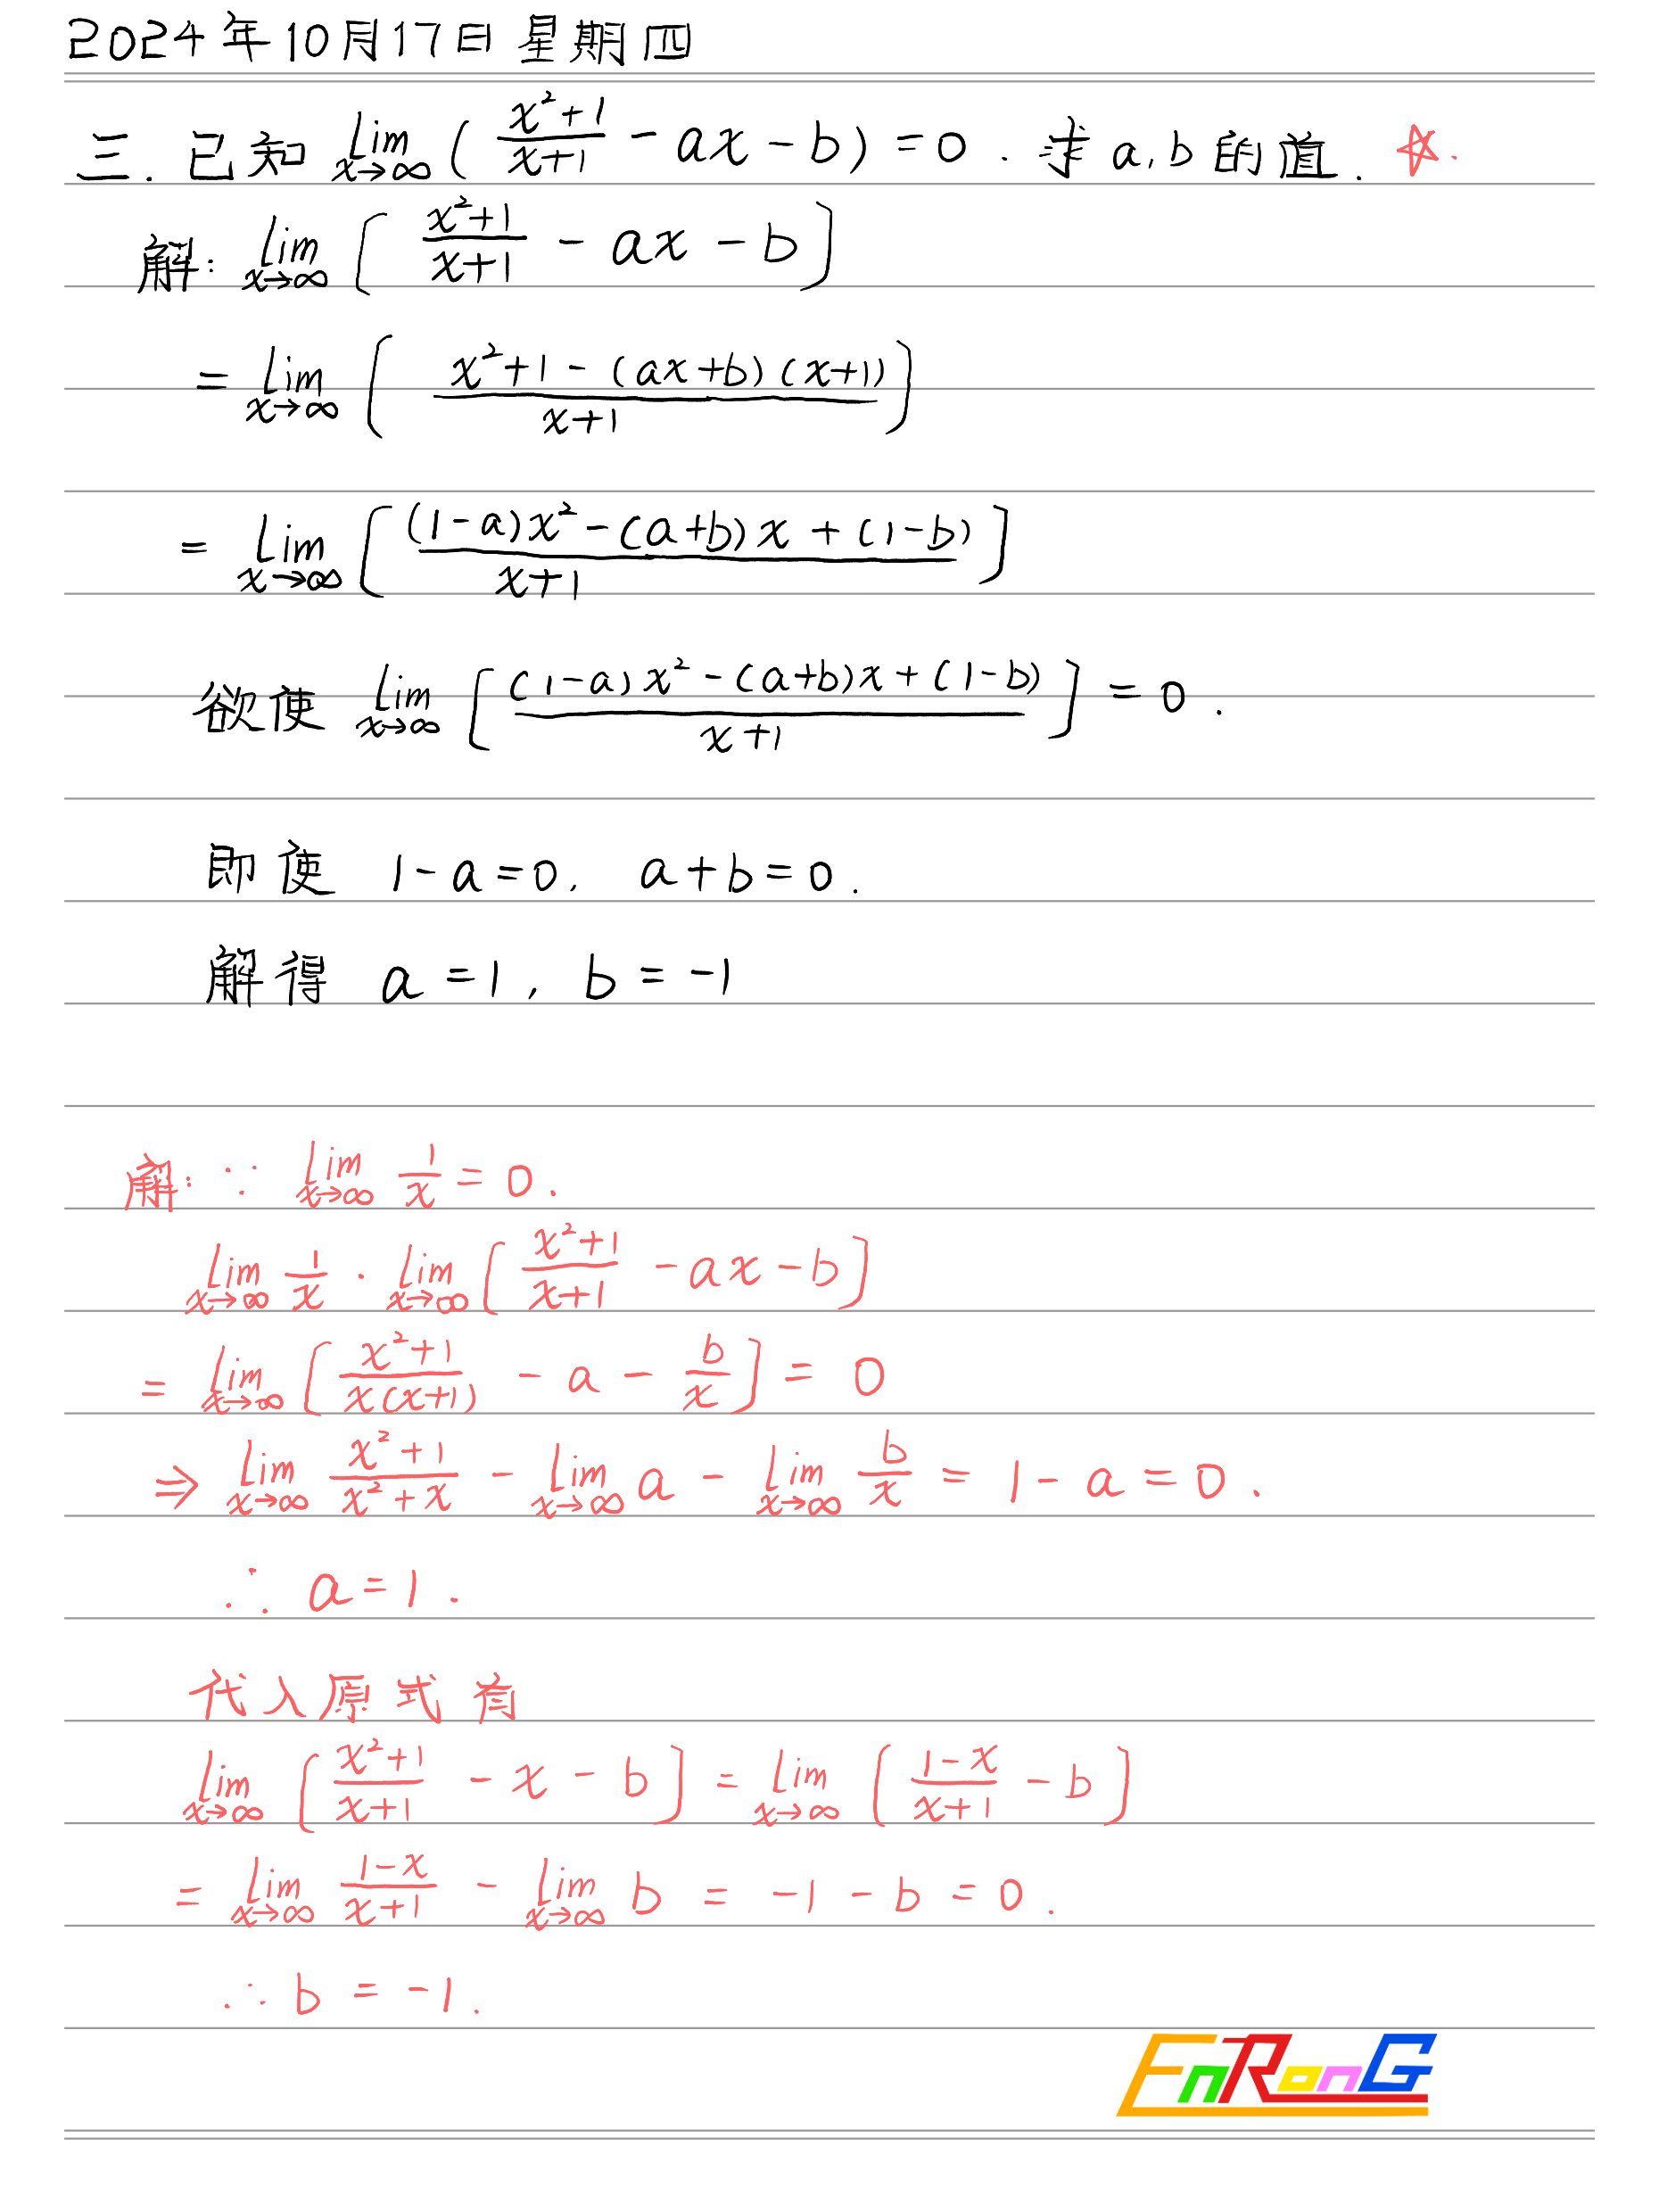 2024年10月17日 星期四
三. 已知 lim x→∞ ( (x²+1)/(x+1) - ax - b ) = 0. 求 a, b 的值. ☆.
解: lim x→∞ [ (x²+1)/(x+1) - ax - b ]
= lim x→∞ [ (x²+1-(ax+b)(x+1))/(x+1) ]
= lim x→∞ [ ((1-a)x²-(a+b)x+(1-b))/(x+1) ]
欲使 lim x→∞ [ ((1-a)x²-(a+b)x+(1-b))/(x+1) ] = 0.
即使 1-a=0, a+b=0.
解得 a=1, b=-1
解: ∵ lim x→∞ 1/x = 0.
lim x→∞ 1/x · lim x→∞ [ (x²+1)/(x+1) - ax - b ]
= lim x→∞ [ (x²+1)/(x(x+1)) - a - b/x ] = 0
⇒ lim x→∞ (x²+1)/(x²+x) - lim x→∞ a - lim x→∞ b/x = 1-a = 0.
∴ a=1.
代入原式有
lim x→∞ [ (x²+1)/(x+1) - x - b ] = lim x→∞ [ (1-x)/(x+1) - b ]
= lim x→∞ (1-x)/(x+1) - lim x→∞ b = -1-b = 0.
∴ b = -1.
EnRonG